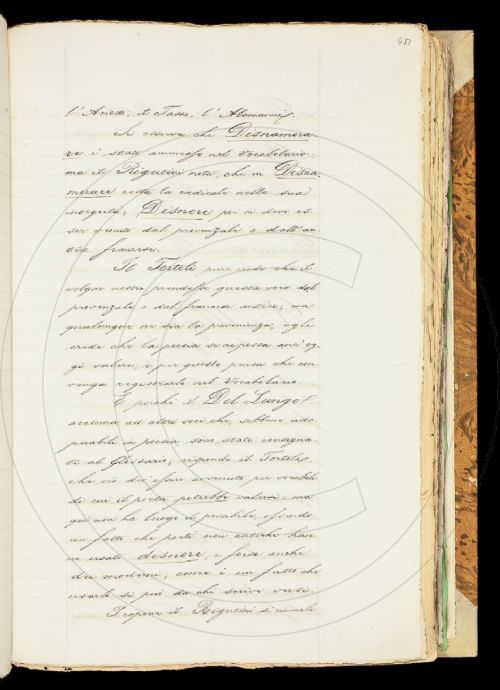 451
l'Ariosto, il Tasso, l'Alamanni.
Si osserva che Disnamora-
re è stato ammesso nel Vocabolario:
ma il Rigutini nota, che in Disna-
morare resta la radicale nella sua
integrità; Disnore per ci deve es-
ser venuto dal provenzale o dall'an-
tico francese.
Il Tortoli pure crede che il
volgar nostro prendesse questa voce dal
provenzale o dal francese antico; ma
qualunque ne sia la provenienza, egli
crede che la poesia se ne possa anc'og-
gi valere, e per questo pensa che con-
venga registrarla nel Vocabolario.
E poichè il Del Lungo
accenna ad altre voci che, sebbene ado-
perabili in poesia sono state consegna-
te al Glossario, risponde il Tortoli,
che ciò dev'essere avvenuto per vocaboli
di cui il poeta potrebbe valersi: ma
qui non ha luogo il possibile, essendo
un fatto che poeti non antichi han-
no usato disnore, e forse anche
dei moderni; come è un fatto che
usarlo si può da chi scrive versi.
Propone il Rigutini di